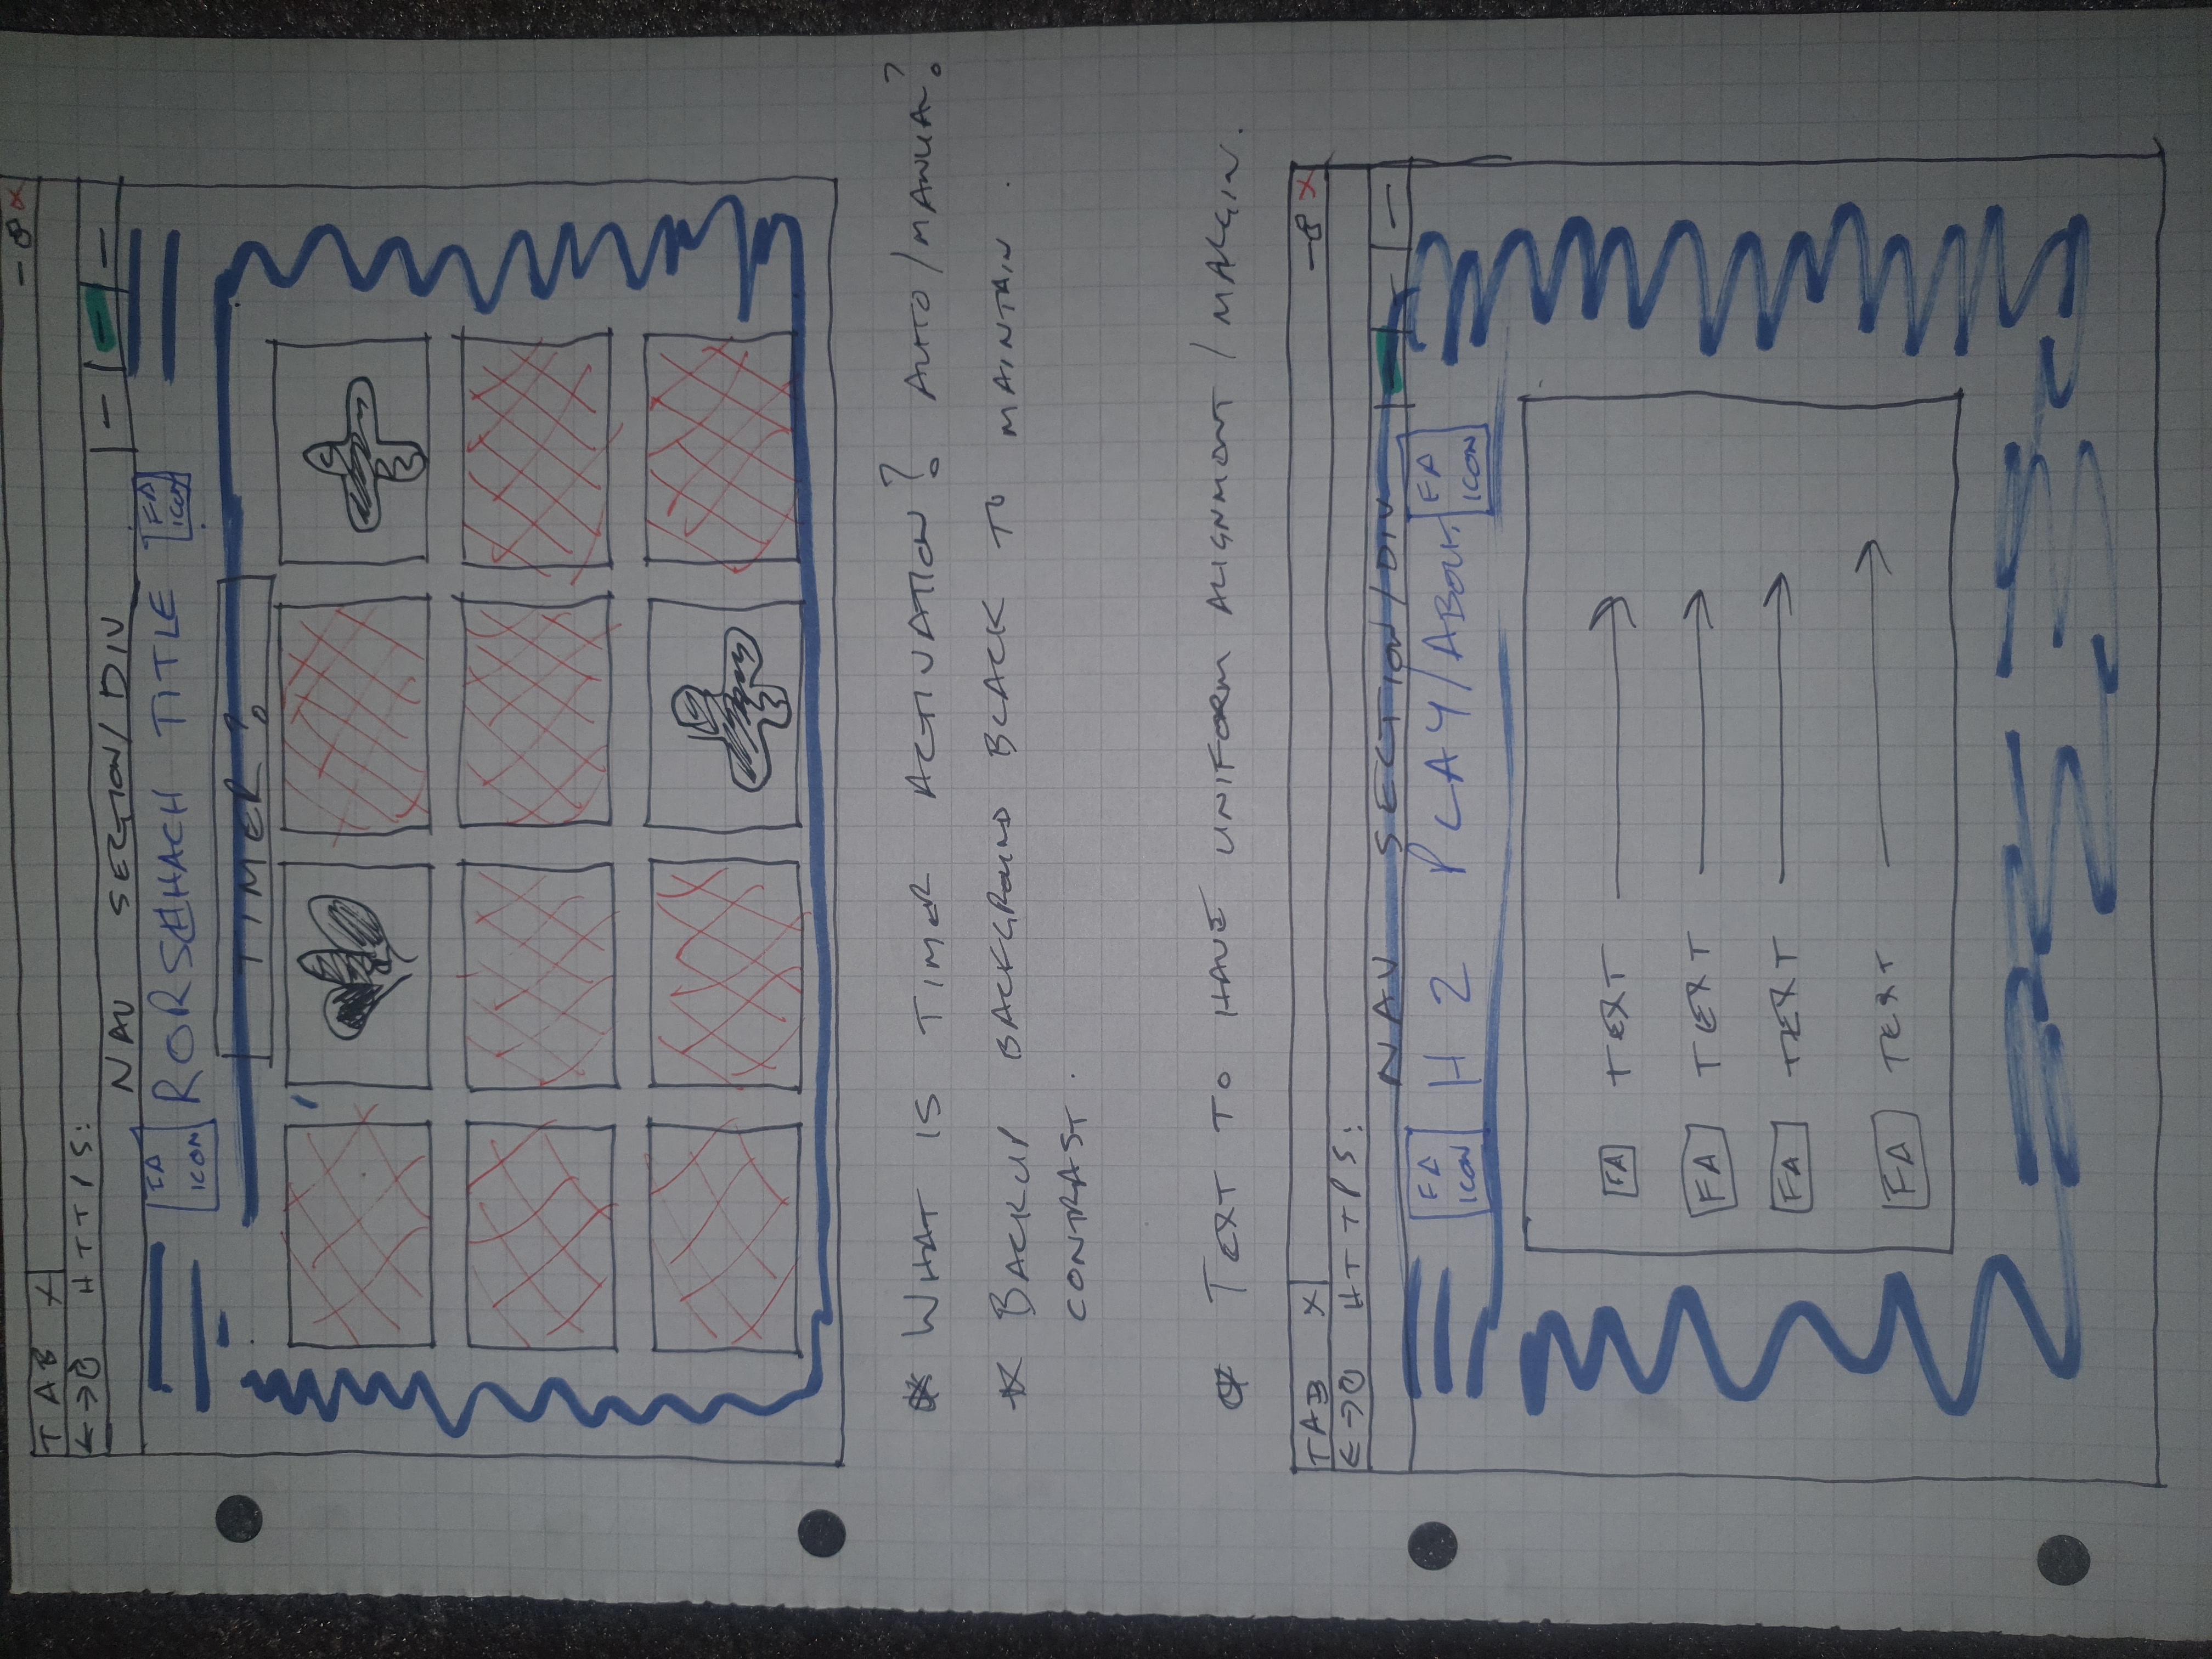 - 8 X
TAB X
← → HTTPS:
NAV SECTION/DIV
FA ICON RORSCHHACH TITLE FA ICON
TIMER?
* WHAT IS TIMER ACTIVATION? AUTO/MANUAL?
* BACKUP BACKGROUND BLACK TO MAINTAIN
CONTRAST.
* TEXT TO HAVE UNIFORM ALIGNMENT / MARGIN.
TAB X - 8 X
← → HTTPS:
NAV SECTION/DIV
FA ICON H2 PLAY/ABOUT FA ICON
FA TEXT
FA TEXT
FA TEXT
FA TEXT